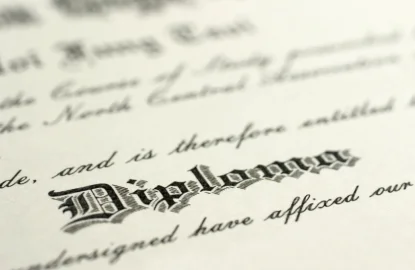 Kung
the Course of Study
the North Central Association
de, and is therefore entitled
Diploma
undersigned have affixed our